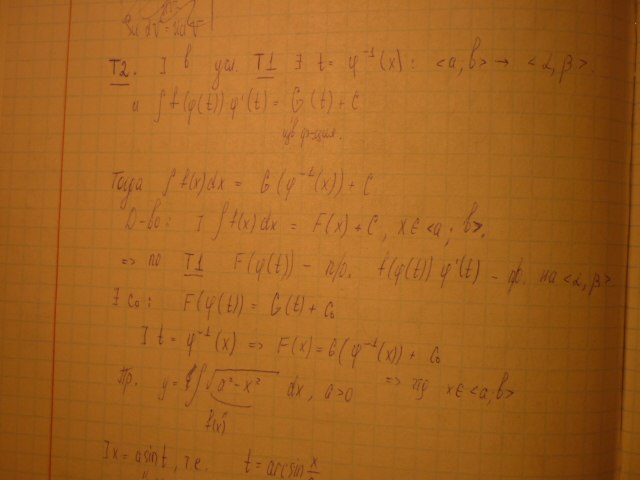 T2. ] в усл. T1 ∃ t = φ⁻¹(x) : <a, b> → <α, β>.
и ∫ f(φ(t)) φ'(t) = G(t) + C
Тогда ∫ f(x)dx = G(φ⁻¹(x)) + C
D-во: ] ∫ f(x) dx = F(x) + C, x ∈ <a; b>.
=> по T1 F(φ(t)) – п/о. f(φ(t)) φ'(t) – на <α, β>
∃ C₀ : F(φ(t)) = G(t) + C₀
] t = φ⁻¹(x) => F(x) = G(φ⁻¹(x)) + C₀
=> x ∈ <a; b>
Пр. y = ∫ √a² – x² dx, a > 0
f(x)
] x = a sin t, т.е. t = arcsin x